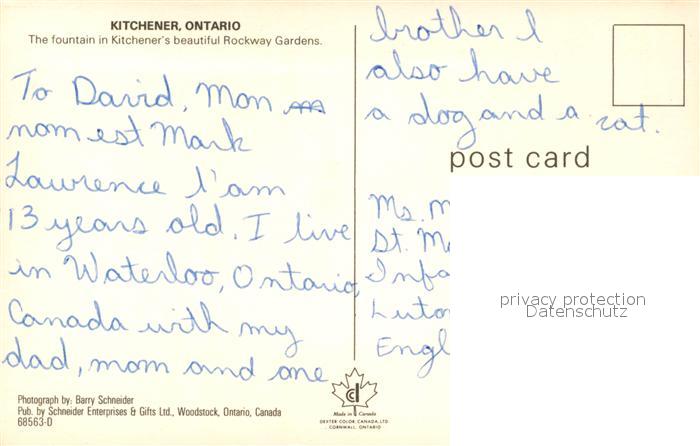 KITCHENER, ONTARIO
The fountain in Kitchener's beautiful Rockway Gardens.
To David, Mon
nom est Mark
Lawrence I'am
13 years old. I live
in Waterloo, Ontario,
Canada with my
dad, mom and one
brother I
also have
a dog and a rat.
post card
Ms. M
St. M
Infa
Luto
Engl
privacy protection
Datenschutz
Photograph by: Barry Schneider
Pub. by Schneider Enterprises & Gifts Ltd., Woodstock, Ontario, Canada
68563-D
Made in Canada
DEXTER COLOR CANADA, LTD.
CORNWALL, ONTARIO